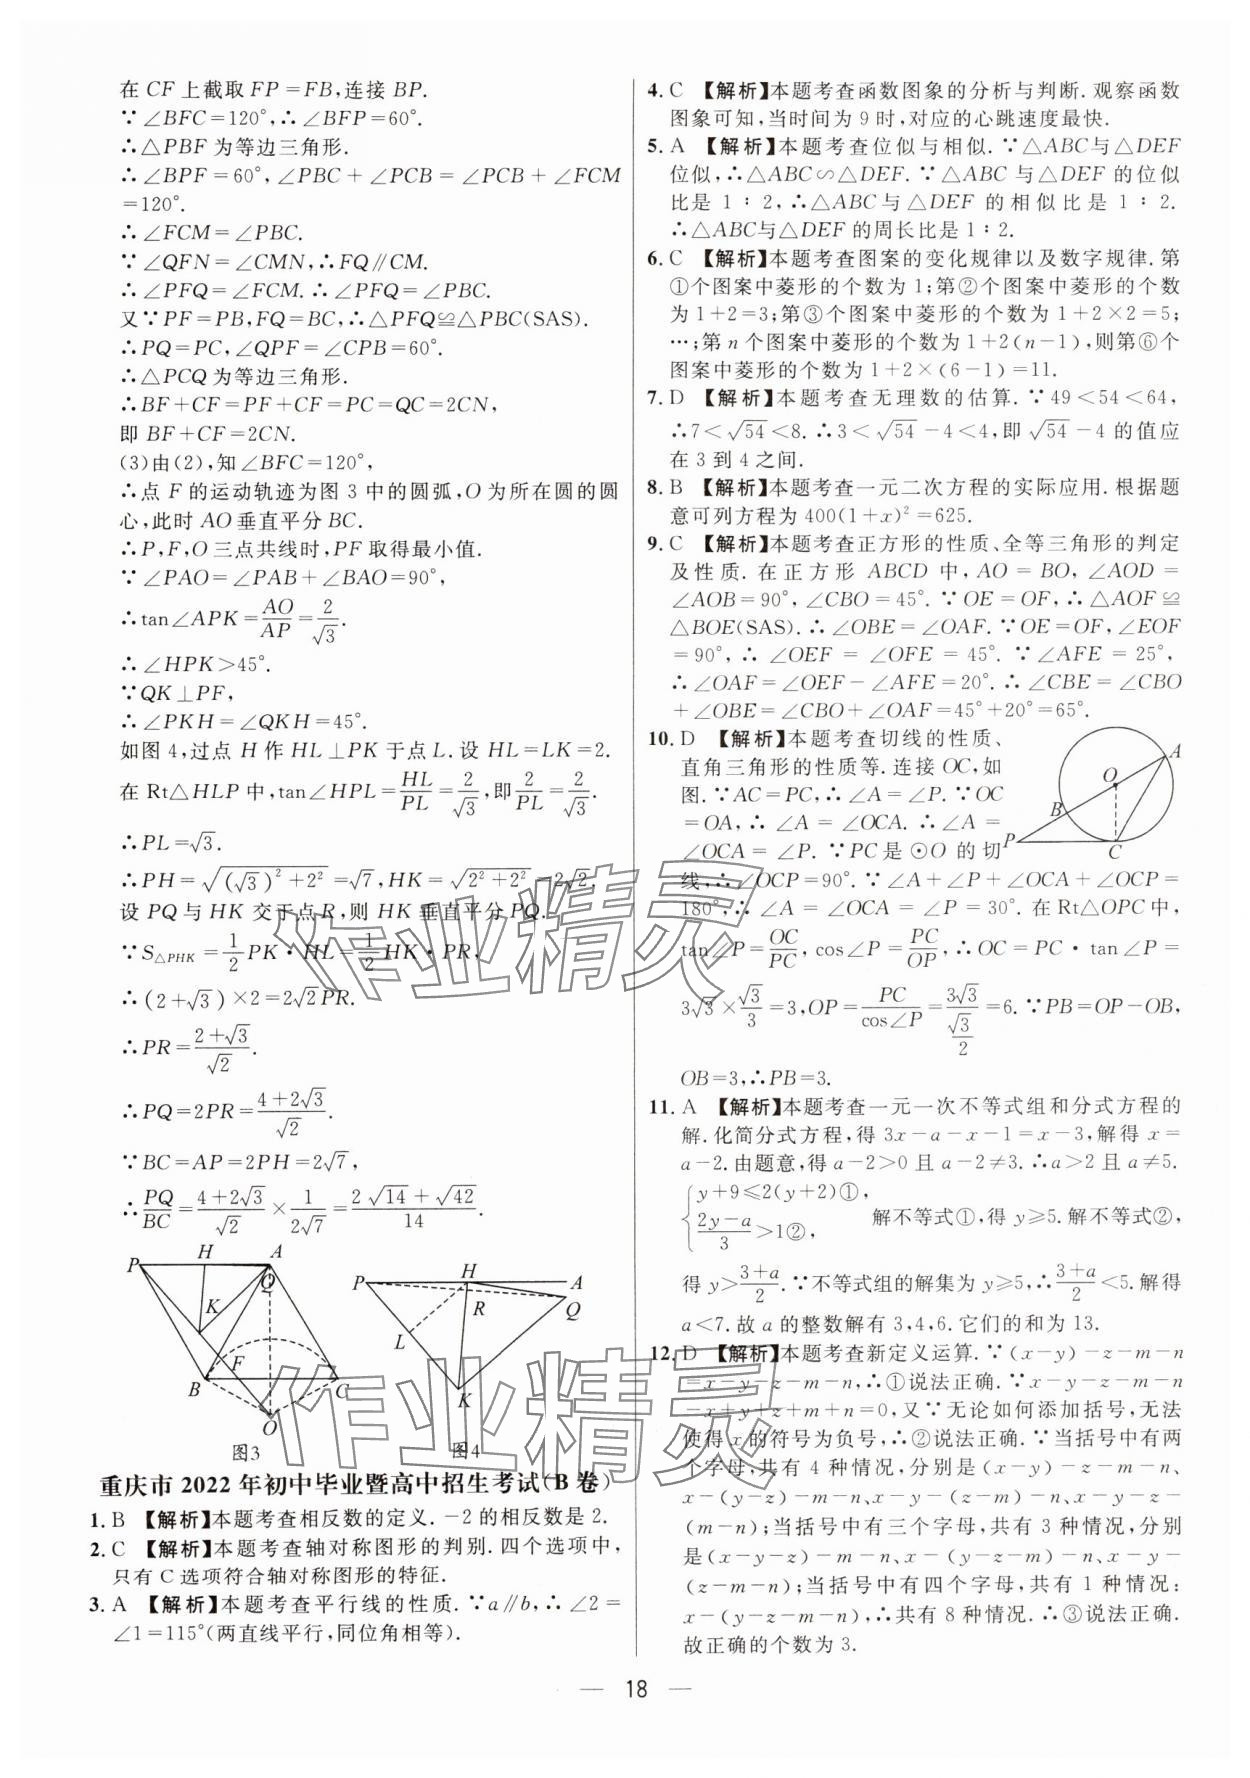 在 CF 上截取 FP=FB,连接 BP.
∵∠BFC=120°,∴∠BFP=60°.
∴△PBF 为等边三角形.
∴∠BPF=60°,∠PBC+∠PCB=∠PCB+∠FCM
=120°.
∴∠FCM=∠PBC.
∵∠QFN=∠CMN,∴FQ∥CM.
∴∠PFQ=∠FCM.∴∠PFQ=∠PBC.
又∵PF=PB,FQ=BC,∴△PFQ≌△PBC(SAS).
∴PQ=PC,∠QPF=∠CPB=60°.
∴△PCQ 为等边三角形.
∴BF+CF=PF+CF=PC=QC=2CN,
即 BF+CF=2CN.
(3)由(2),知∠BFC=120°,
∴点 F 的运动轨迹为图 3 中的圆弧,O 为所在圆的圆
心,此时 AO 垂直平分 BC.
∴P,F,O 三点共线时,PF 取得最小值.
∵∠PAO=∠PAB+∠BAO=90°,
∴tan∠APK=AO/AP=2/√3.
∴∠HPK>45°.
∵QK⊥PF,
∴∠PKH=∠QKH=45°.
如图 4,过点 H 作 HL⊥PK 于点 L.设 HL=LK=2.
在 Rt△HLP 中,tan∠HPL=HL/PL=2/√3,即2/PL=2/√3.
∴PL=√3.
∴PH=√((√3)²+2²)=√7,HK=√(2²+2²)=2√2,
设 PQ 与 HK 交于点 R,则 HK 垂直平分 PQ.
∵S△PHK=1/2PK·HL=1/2HK·PR,
∴(2+√3)×2=2√2PR.
∴PR=(2+√3)/√2.
∴PQ=2PR=(4+2√3)/√2.
∵BC=AP=2PH=2√7,
∴PQ/BC=(4+2√3)/√2×1/(2√7)=(2√14+√42)/14.
P H A Q K F B C O
图3
P H A Q R L K
图4
重庆市 2022 年初中毕业暨高中招生考试(B 卷)
1. B 【解析】本题考查相反数的定义.-2 的相反数是 2.
2. C 【解析】本题考查轴对称图形的判别.四个选项中,
只有 C 选项符合轴对称图形的特征.
3. A 【解析】本题考查平行线的性质.∵a∥b,∴∠2=
∠1=115°(两直线平行,同位角相等).
4. C 【解析】本题考查函数图象的分析与判断.观察函数
图象可知,当时间为 9 时,对应的心跳速度最快.
5. A 【解析】本题考查位似与相似.∵△ABC与△DEF
位似,∴△ABC∽△DEF.∵△ABC 与△DEF 的位似
比是 1∶2,∴△ABC与△DEF 的相似比是 1∶2.
∴△ABC与△DEF 的周长比是 1∶2.
6. C 【解析】本题考查图案的变化规律以及数字规律.第
①个图案中菱形的个数为 1;第②个图案中菱形的个数
为 1+2=3;第③个图案中菱形的个数为 1+2×2=5;
…;第 n 个图案中菱形的个数为 1+2(n-1),则第⑥个
图案中菱形的个数为 1+2×(6-1)=11.
7. D 【解析】本题考查无理数的估算.∵49<54<64,
∴7<√54<8.∴3<√54-4<4,即√54-4 的值应
在 3 到 4 之间.
8. B 【解析】本题考查一元二次方程的实际应用.根据题
意可列方程为 400(1+x)²=625.
9. C 【解析】本题考查正方形的性质、全等三角形的判定
及性质.在正方形 ABCD 中,AO=BO,∠AOD=
∠AOB=90°,∠CBO=45°.∵OE=OF,∴△AOF≌
△BOE(SAS).∴∠OBE=∠OAF.∵OE=OF,∠EOF
=90°,∴∠OEF=∠OFE=45°.∵∠AFE=25°,
∴∠OAF=∠OEF-∠AFE=20°.∴∠CBE=∠CBO
+∠OBE=∠CBO+∠OAF=45°+20°=65°.
10. D 【解析】本题考查切线的性质、
直角三角形的性质等.连接 OC,如
图.∵AC=PC,∴∠A=∠P.∵OC
=OA,∴∠A=∠OCA.∴∠A=
∠OCA=∠P.∵PC是⊙O 的切
线,∴∠OCP=90°.∵∠A+∠P+∠OCA+∠OCP=
180°,∴∠A=∠OCA=∠P=30°.在Rt△OPC中,
tan∠P=OC/PC,cos∠P=PC/OP,∴OC=PC·tan∠P=
3√3×√3/3=3,OP=PC/cos∠P=3√3/(√3/2)=6.∵PB=OP-OB,
OB=3,∴PB=3.
A O B P C
11. A 【解析】本题考查一元一次不等式组和分式方程的
解.化简分式方程,得 3x-a-x-1=x-3,解得 x=
a-2.由题意,得 a-2>0 且 a-2≠3.∴a>2 且 a≠5.
{y+9≤2(y+2)①,
(2y-a)/3>1②, 解不等式①,得 y≥5.解不等式②,
得 y>(3+a)/2.∵不等式组的解集为 y≥5,∴(3+a)/2<5.解得
a<7.故 a 的整数解有 3,4,6.它们的和为 13.
12. D 【解析】本题考查新定义运算.∵(x-y)-z-m-n
=x-y-z-m-n,∴①说法正确.∵x-y-z-m-n
-x+y+z+m+n=0,又∵无论如何添加括号,无法
使得 x 的符号为负号,∴②说法正确.∵当括号中有两
个字母,共有 4 种情况,分别是(x-y)-z-m-n、
x-(y-z)-m-n、x-y-(z-m)-n、x-y-z-
(m-n);当括号中有三个字母,共有 3 种情况,分别
是(x-y-z)-m-n、x-(y-z-m)-n、x-y-
(z-m-n);当括号中有四个字母,共有 1 种情况:
x-(y-z-m-n),∴共有 8 种情况.∴③说法正确.
故正确的个数为 3.
作业精灵
作业精灵
— 18 —